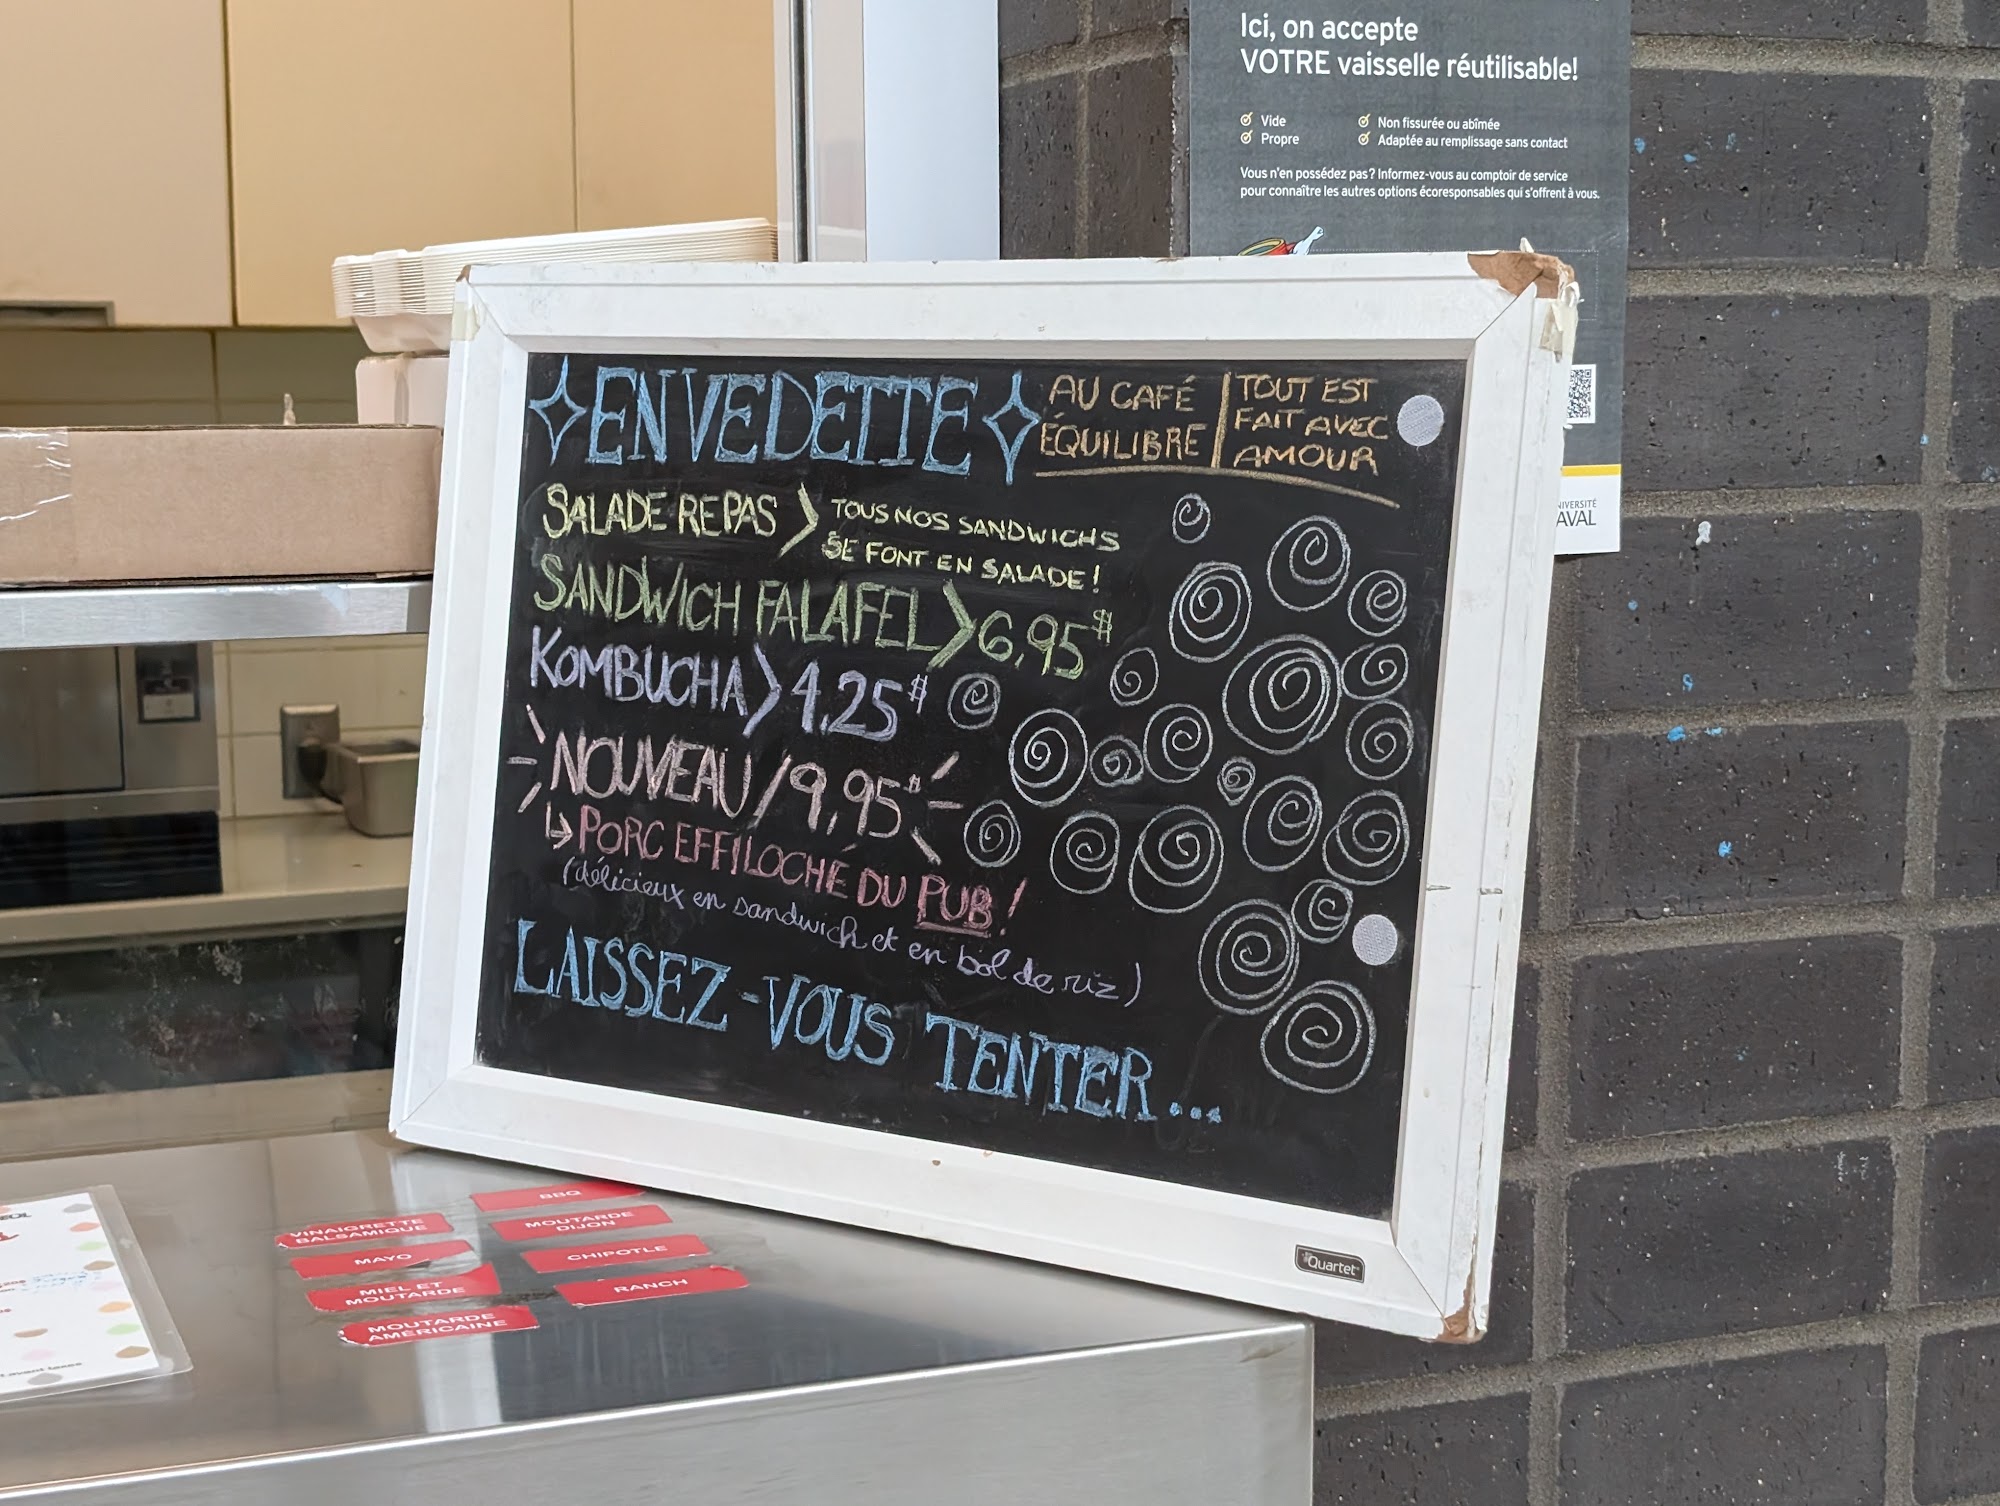 Ici, on accepte
VOTRE vaisselle réutilisable!
Vide
Propre
Non fissurée ou abîmée
Adaptée au remplissage sans contact
Vous n'en possédez pas? Informez-vous au comptoir de service
pour connaître les autres options écoresponsables qui s'offrent à vous.
EN VEDETTE
AU CAFÉ
ÉQUILIBRE
TOUT EST
FAIT AVEC
AMOUR
SALADE REPAS > TOUS NOS SANDWICHS
SE FONT EN SALADE !
SANDWICH FALAFEL > 6,95$
KOMBUCHA > 4.25$
NOUVEAU / 9,95$
↳ PORC EFFILOCHÉ DU PUB !
(délicieux en sandwich et en bol de riz)
LAISSEZ-VOUS TENTER...
Quartet
BBQ
VINAIGRETTE
BALSAMIQUE
MOUTARDE
DIJON
MAYO
CHIPOTLE
MIEL ET
MOUTARDE
RANCH
MOUTARDE
AMÉRICAINE